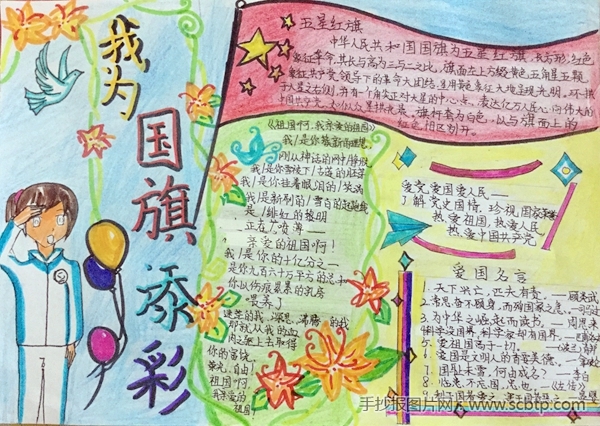 我为
国旗添彩
五星红旗
中华人民共和国国旗为五星红旗，长方形，红色
象征革命，其长与高为三与二之比，旗面左上方缀黄色五角星五颗
象征共产党领导下的革命大团结，星用黄色象征大地呈现光明，环拱
于大星之右侧，并有一个角尖正对大星的中心点，表达亿万人民心向伟大的
中国共产党
旗杆套为白色，以与旗面上的
红色相区别开。
《祖国啊，我亲爱的祖国》
我是你簇新的理想
刚从神话的蛛网里挣脱
我是你雪被下古莲的胚芽
我是你挂着眼泪的笑涡
我是新刷出的雪白的起跑线
是绯红的黎明
正在喷薄
亲爱的祖国啊！
我是你的十亿分之一
是你九百六十万平方的总和
你以伤痕累累的乳房
喂养了
迷茫的我，深思，沸腾的我
那就从我的血
肉之躯上去取得
你的富饶
荣光，自由！
祖国啊，
我亲爱的
祖国！
爱党爱国爱人民
了解党史国情，珍视国家荣誉
热爱祖国，热爱人民
热爱中国共产党
爱国名言
1. 天下兴亡，匹夫有责。——顾炎武
2. 常思奋不顾身，而殉国家之急。——司马迁
3. 为中华之崛起而读书。——周恩来
4. 科学没国界，科学家却有国界。
5. 爱祖国高于一切。
6. 爱国是文明人的首要美德。
7. 国耻未雪，何由成名？——李白
8. 临患不忘国，忠也。——《左传》
9.
手抄报图片网-www.scbtp.com